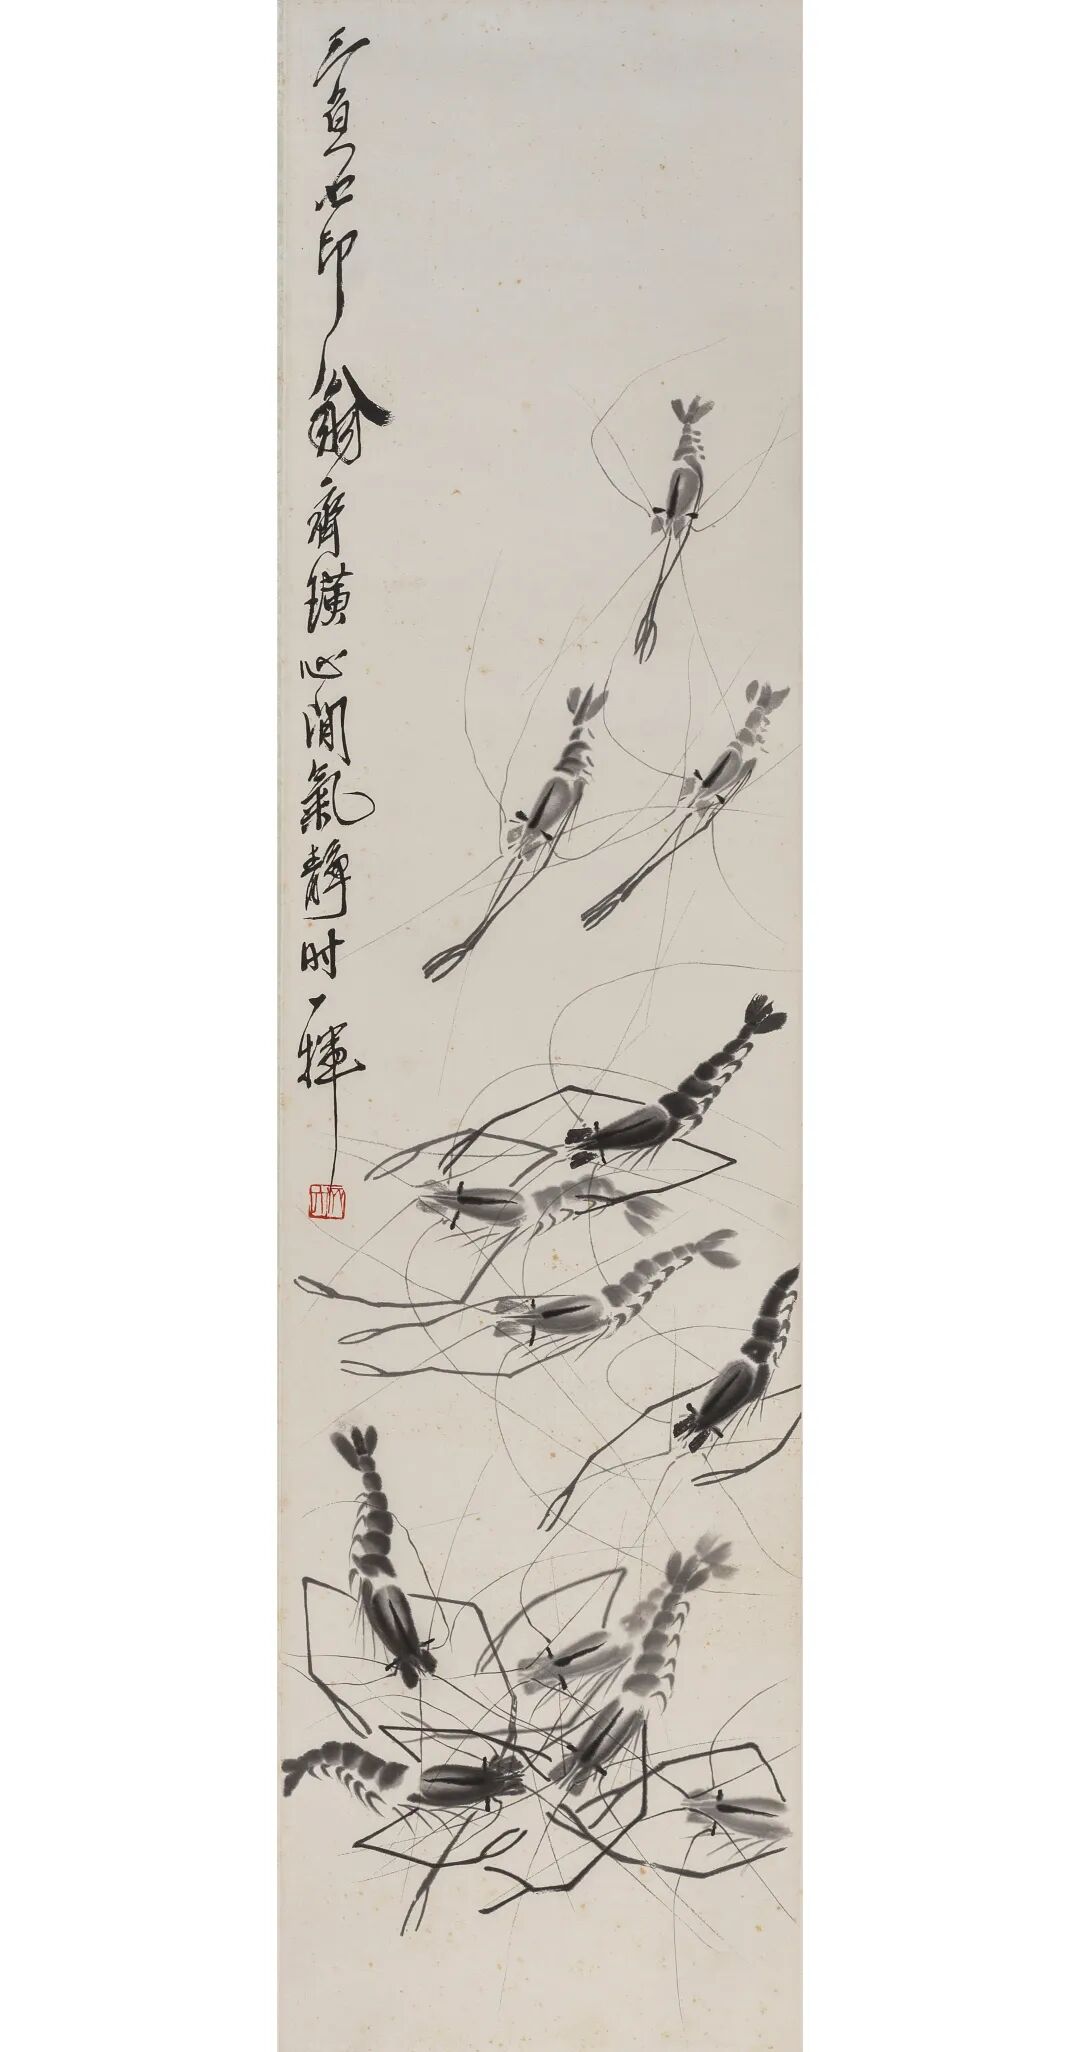 三百石印富翁齊璜心閒氣靜时一揮
木人